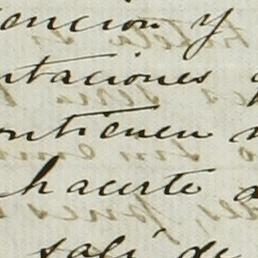 encion y
ntaciones
ontienen
hacerte a
salí de